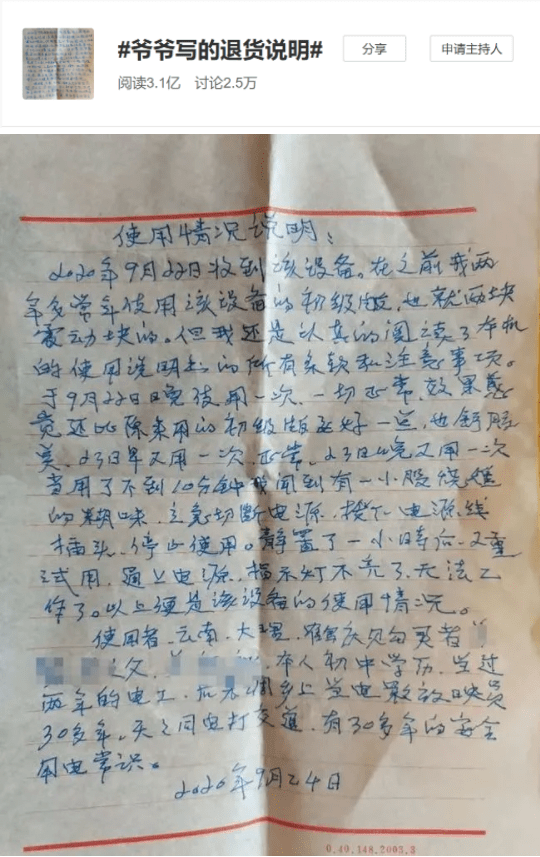 #爷爷写的退货说明#
分享
申请主持人
阅读3.1亿 讨论2.5万
使用情况说明:
2020年9月22日收到该设备。在之前我两
年多常年使用该设备的初级版,也就两块
震动块的。但我还是认真的阅读了本机
的使用说明书的所有条款和注意事项。
于9月22日晚使用一次,一切正常,效果感
觉还比原来用的初级版还好一点,也舒服
美。23日早又用一次,正常。23日晚又用一次
当用了不到10分钟闻到有一小股烧焦
的糊味,立急切断电源,拔下电源线
插头,停止使用。静置了一小时后,又重
试用,通上电源,指示灯不亮了,无法工
作了。以上便是该设备的使用情况。
使用者,云南、大理、鹤庆
之父,本人初中学历,当过
两年的电工,在乡上当电影放映员
30多年,天天同电打交道,有30多年的安全
用电常识。
2020年9月24日
0.49.148.2003.3